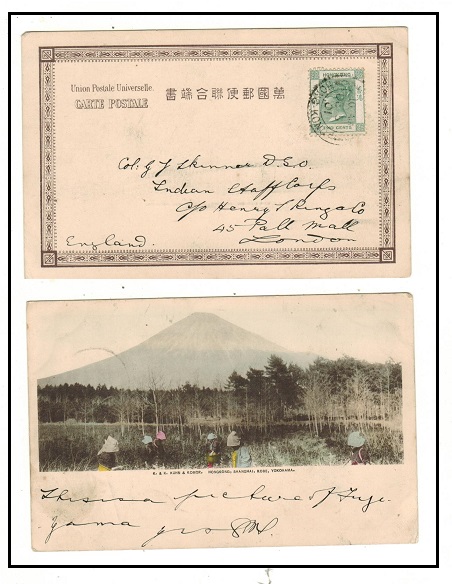 Union Postale Universelle.
CARTE POSTALE
書端合聯便郵國萬
HONG KONG
TWO CENTS
Col: G J Skinner D.S.O
Indian Staff Corps
c/o Henry S King & Co
45 Pall Mall
London
England.
HONGKONG, SHANGHAI, KOBE, YOKOHAMA.
This is a picture of Fuji
yama